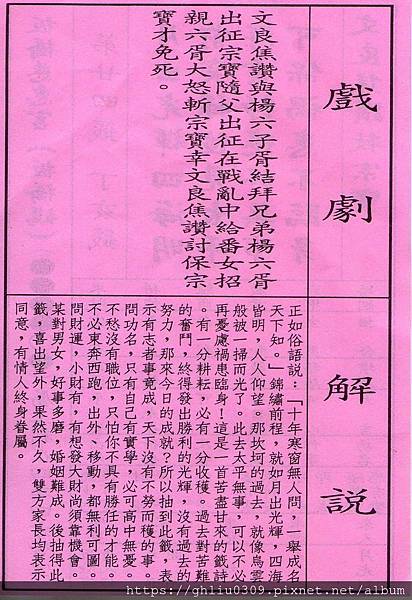 戲劇
文良焦讚與楊六子胥結拜兄弟楊六胥
出征宗寶隨父出征在戰亂中給番女招
親六胥大怒斬宗寶幸文良焦讚討保宗
寶才免死。
解說
正如俗語說:「十年寒窗無人問,一舉成名
天下知。」錦繡前程,就如月出光輝,四海
皆明,人人仰望。那坎坷的過去,就像烏雲
般被一掃而光了。此去太平無事,可以不必
再憂慮禍患臨身!這是一首苦盡甘來的籤詩
。有一分耕耘,必有一分收穫。過去對苦難
的奮鬥,終得發出勝利的光輝,沒有過去的
努力,那來今日的成就?所以抽到此籤,表
示有志者事竟成,天下沒有不勞而穫的事。
問功名,只有自己有實學,必可高中無憂。
不愁沒有職位,只怕你不具有勝任的才能。
不必東奔西跑,出外、移動,都無利可圖。
問財運,小財有,有想發大財尚須靠機會。
某對男女,好事多磨,婚姻難成。後抽得此
籤,喜出望外,果然不久,雙方家長均表示
同意,有情人終身眷屬。
https://ghliu0309.pixnet.net/album